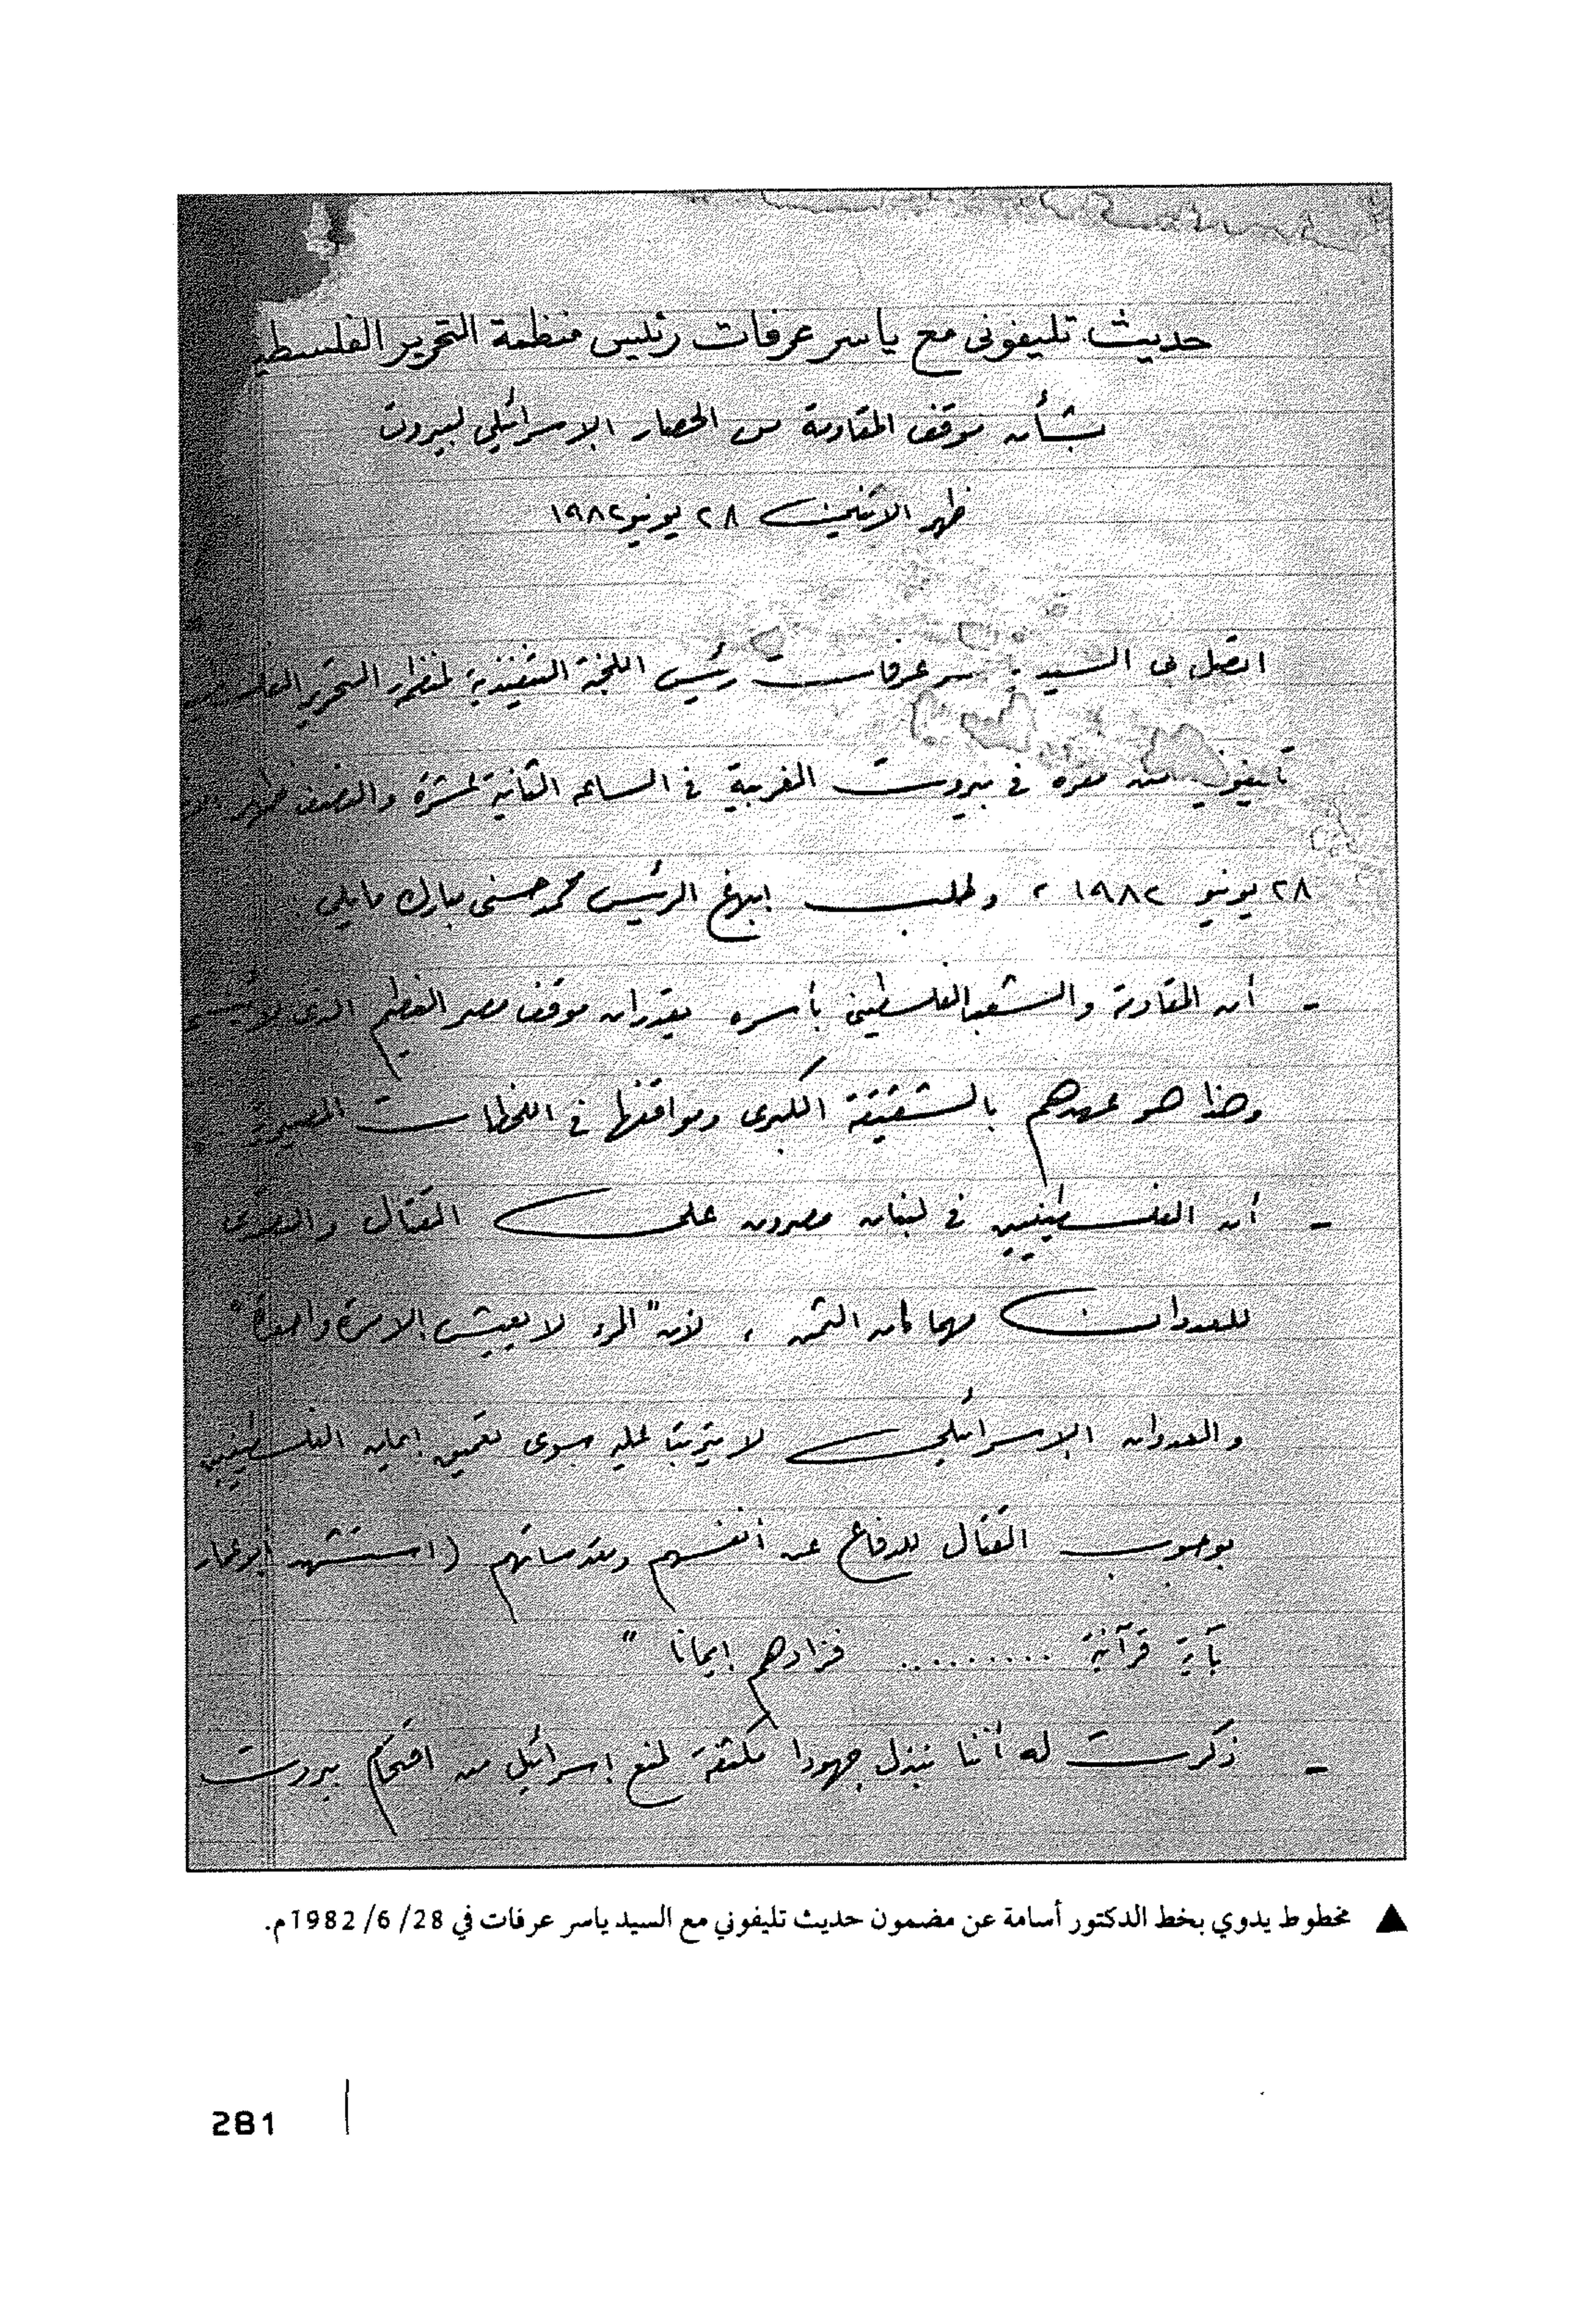 حديث تليفونى مع ياسر عرفات رئيس منظمة التحرير
بشأن موقف المقاومة من الحصار الإسرائيلي لبيروت
ظهر الاثنين ٢٨ يونيو ١٩٨٢
اتصل بى السيد عرفات رئيس اللجنة التنفيذية لمنظمة التحرير
من مقره فى بيروت الغربية فى الساعة الثانية عشرة والنصف ظهر
٢٨ يونيو ١٩٨٢ ، وطلب إبلاغ الرئيس محمد حسنى مبارك مايلى :
- أن المقاومة والشعب الفلسطينى بأسره يقدران موقف مصر العظيم الذى
وهذا هو عهدهم بالشقيقة الكبرى ومواقفها فى اللحظات المصيرية
- أن الفلسطينيين فى لبنان مصرون على القتال والتصدى
للعدوان مهما كان الثمن ، لأن "المرء لا يعيش إلا مرة واحدة"
والعدوان الإسرائيلى لا يترتب عليه سوى تعميق إيمان الفلسطينيين
بوجوب القتال للدفاع عن أنفسهم ومقدساتهم (استشهد أبو عمار
بآية قرآنية .......... فزادهم إيمانا "
- ذكرت له أننا نبذل جهودا مكثفة لمنع إسرائيل من اقتحام بيروت
▲ مخطوط يدوي بخط الدكتور أسامة عن مضمون حديث تليفوني مع السيد ياسر عرفات في 28/ 6/ 1982م.
281